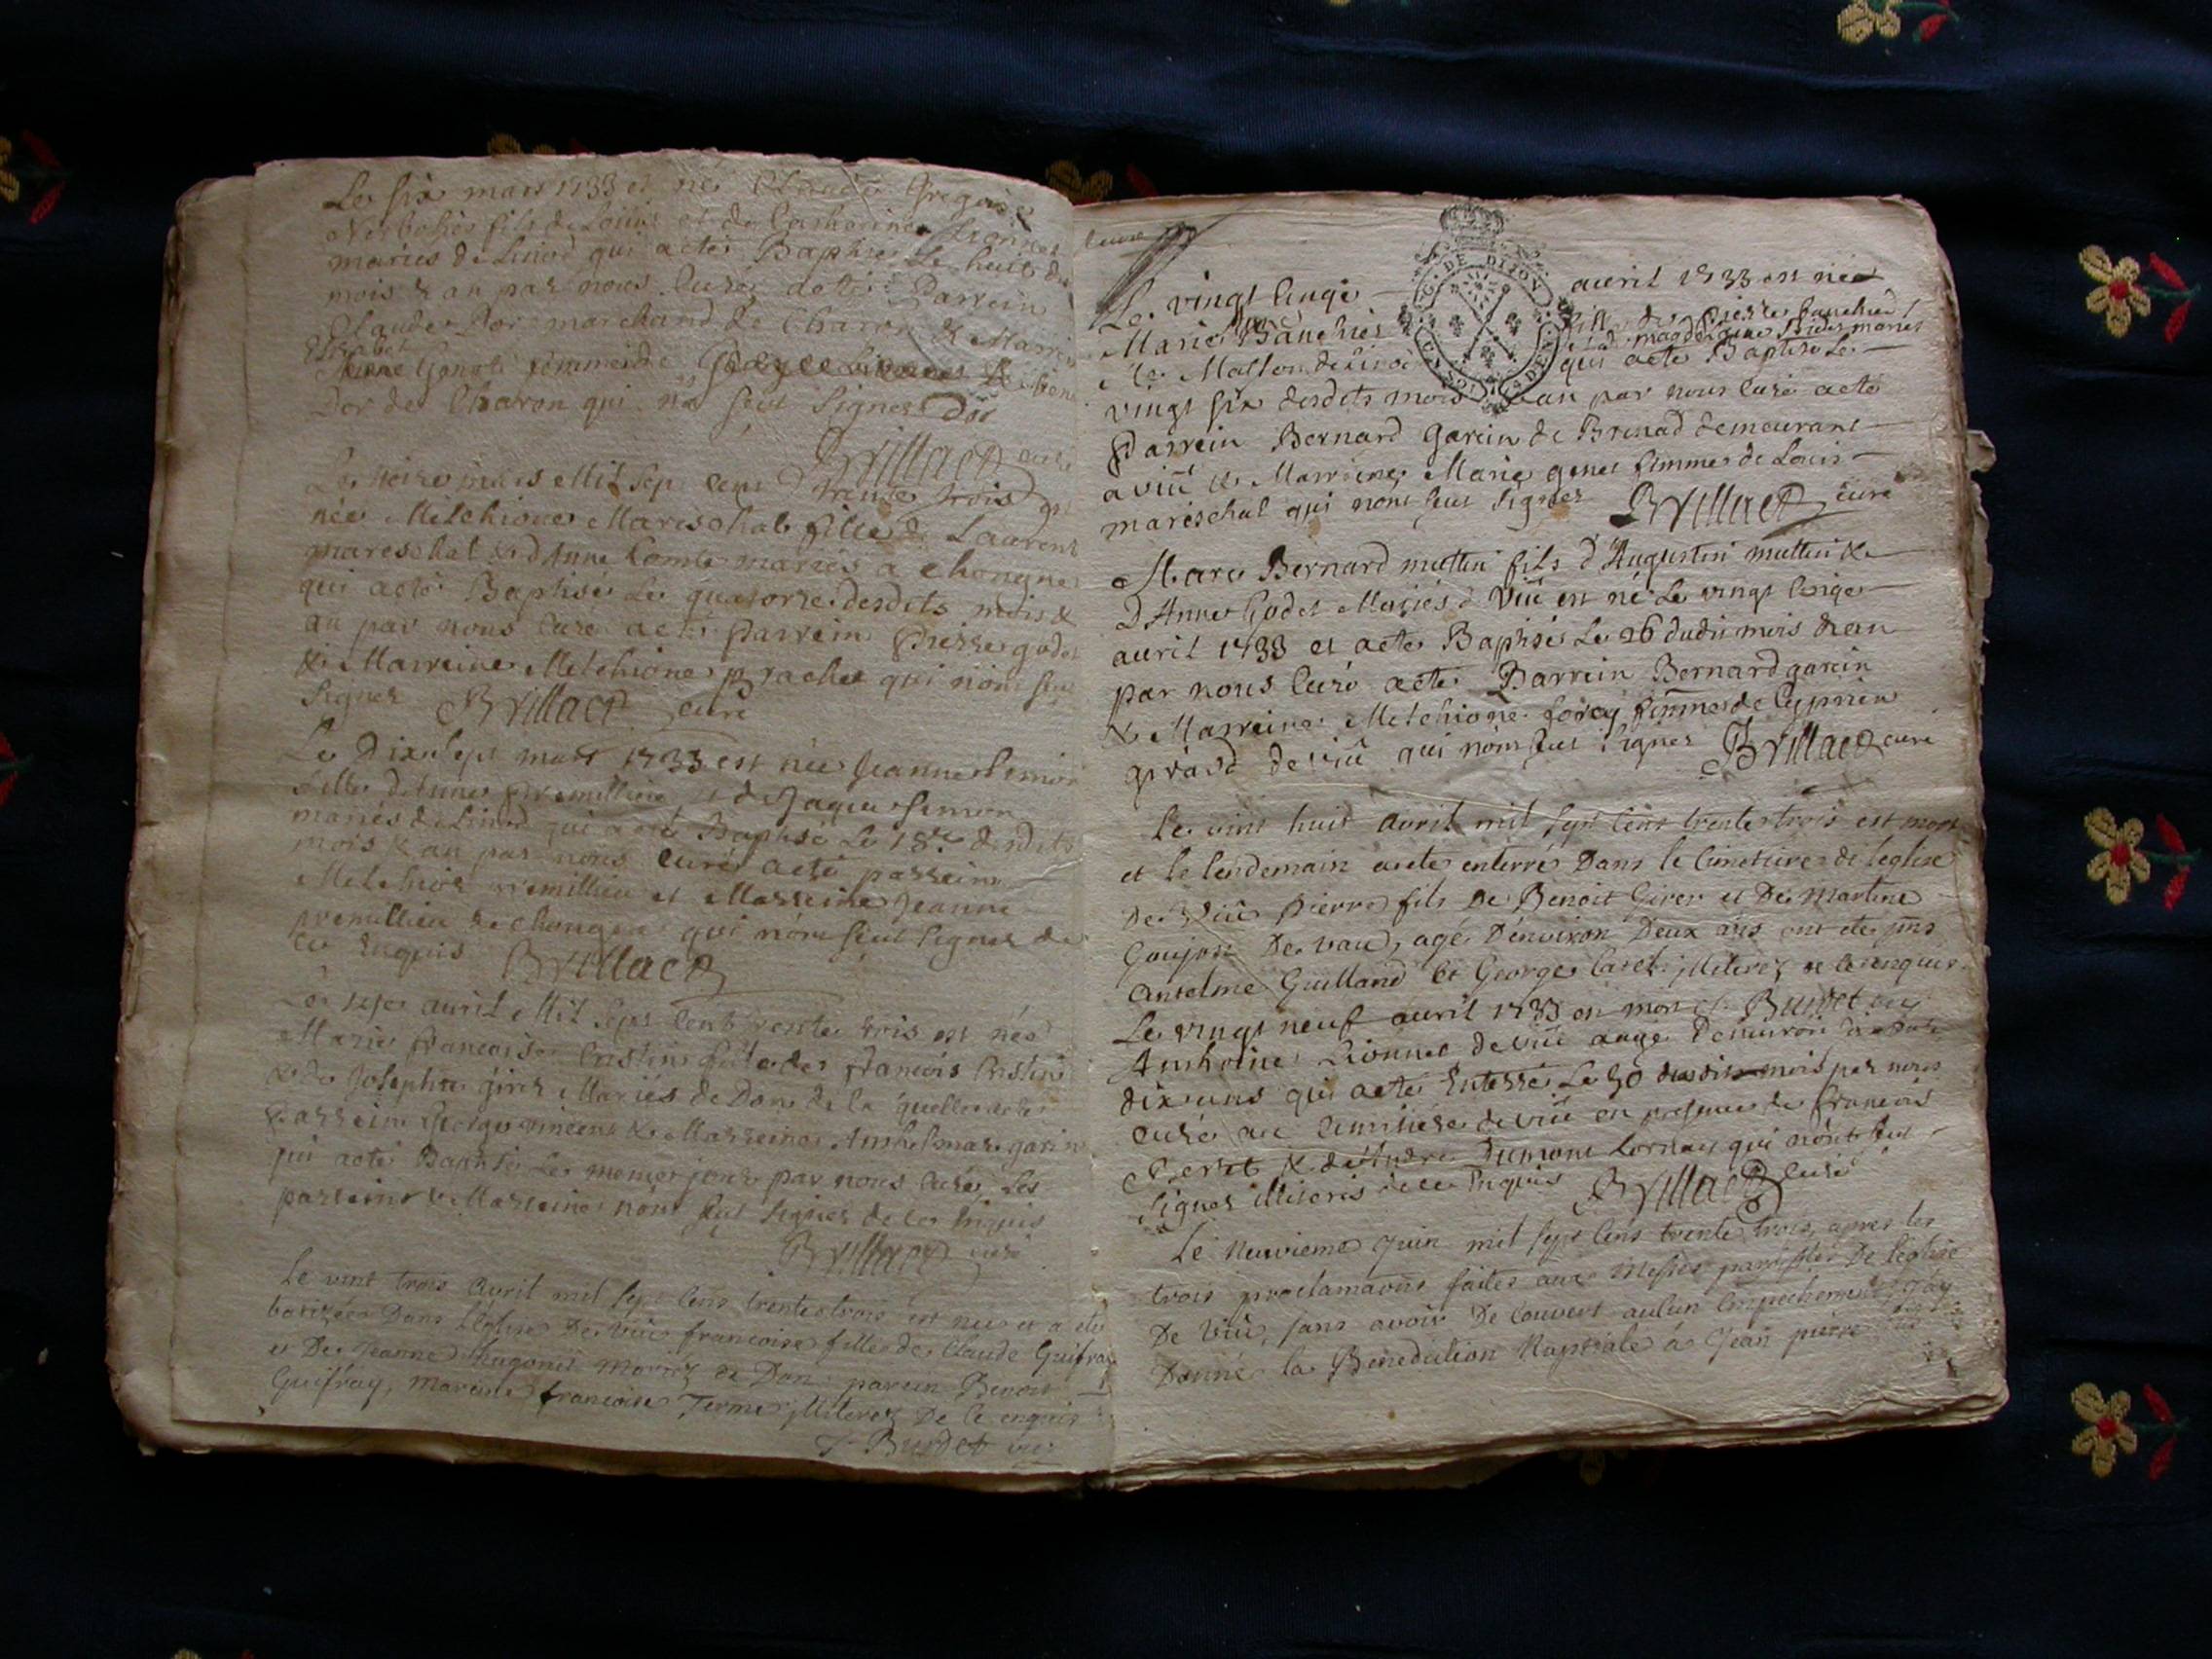 Le six mars 1733 est né Claude Gregoire
fils de Louis et de Catherine
mariés de Linod qui a etté Baptisé Le huit du
mois & an par nous Curé a etté Parrein
Claude Dor marchand de Charon & Marreine
Elizabet
femme de
Dor de Charon qui n'a seut signer Dor
Brillact curé
Le treize mars Mil sept cens trente trois est
née Melchione Mareschal fille de Laurent
mareschal & d'Anne Combe mariés a Chongnes
qui a etté Baptisé Le quatorze desdits mois &
an par nous Curé a etté parrein Pierre godet
& Marreine Melchione prachet qui n'ont seut
signer Brillact curé
Le Dix sept mars 1733 est née Jeanne Simon
fille d'Anne premillieu et de Jaque Simon
mariés de Linod qui a etté Baptisé Le 18e desdits
mois & an par nous Curé a etté parrein
Melchior premillieu et Marreine Jeanne
premillieu de Chongnes qui n'ont seut signer de
ce Enquis Brillact
Le avril Mil sept cent trente trois est née
Marie francoise Cristin fille de francois Cristin
& de Josephte girer Mariés de Don de la quelle a etté
Parrein George vincent & Marreine Anthelmare garin
qui a etté Baptisé Le meme jour par nous Curé Les
parrein & Marreine n'ont seut signer de ce Enquis
Brillact curé
Le vint trois avril mil sept cens trente trois est née et a eté
batizée Dans l'église De Viû francoise fille de Claude Guifray
et De Jeanne hugonet mariéz de Don parein Benoit
Guifray, mareine francoise Ferme, illiterez De ce enquis
J Burdet vic
Le vingt cinqe avril 1733 est née
Marie Bauchier fille de Pierre bauchier
& d magdeleine mariés
Masson de Linod qui a etté Baptisé Le
vingt six desdits mois & an par nous Curé a etté
Parrein Bernard Garein de Brenad demeurant
a viû & Marreine Marie genet femme de Louis
mareschal qui n'ont seut signer Brillact curé
Marc Bernard muttin fils d'Augustin muttin &
D'Anne Godet Mariés d Viû est né Le vingt cinqe
avril 1733 et a etté Baptisé Le 26 dudit mois & an
par nous Curé a etté Parrein Bernard garein
& Marreine Melchione forey femme de Cyprien
girard de viû qui n'ont seut signer Brillact curé
Le vint huit avril mil sept cens trente trois est mort
et le lendemain a eté enterré Dans le Cimetiere de l'eglise
De Viû Pierre fils De Benoit Girer et De Martine
Goujon De vau, agé D'environ Deux ans ont eté pns
Anselme Guilland et George Caret illiterez de ce enquis
Burdet vic
Le vingt neuf avril 1733 est mort
Anthoine Lionnet de viû aagé D'environ
dix ans qui a etté Enterré Le 30 dudit mois par nous
curé au Cimitiere de viû en presence de francois
Perret & de Andre Dumont Cornay qui n'ont seut
signer illiteris de ce Enquis Brillact Curé
Le neuvieme juin mil sept cens trente trois, apres les
trois proclamations faites aux Messes paroissles De l'eglise
De Viû, sans avoir Decouvert aucun Empechement, j'ay
Donné la Benediction Nuptiale à Jean pierre fils
G. DE DIJON